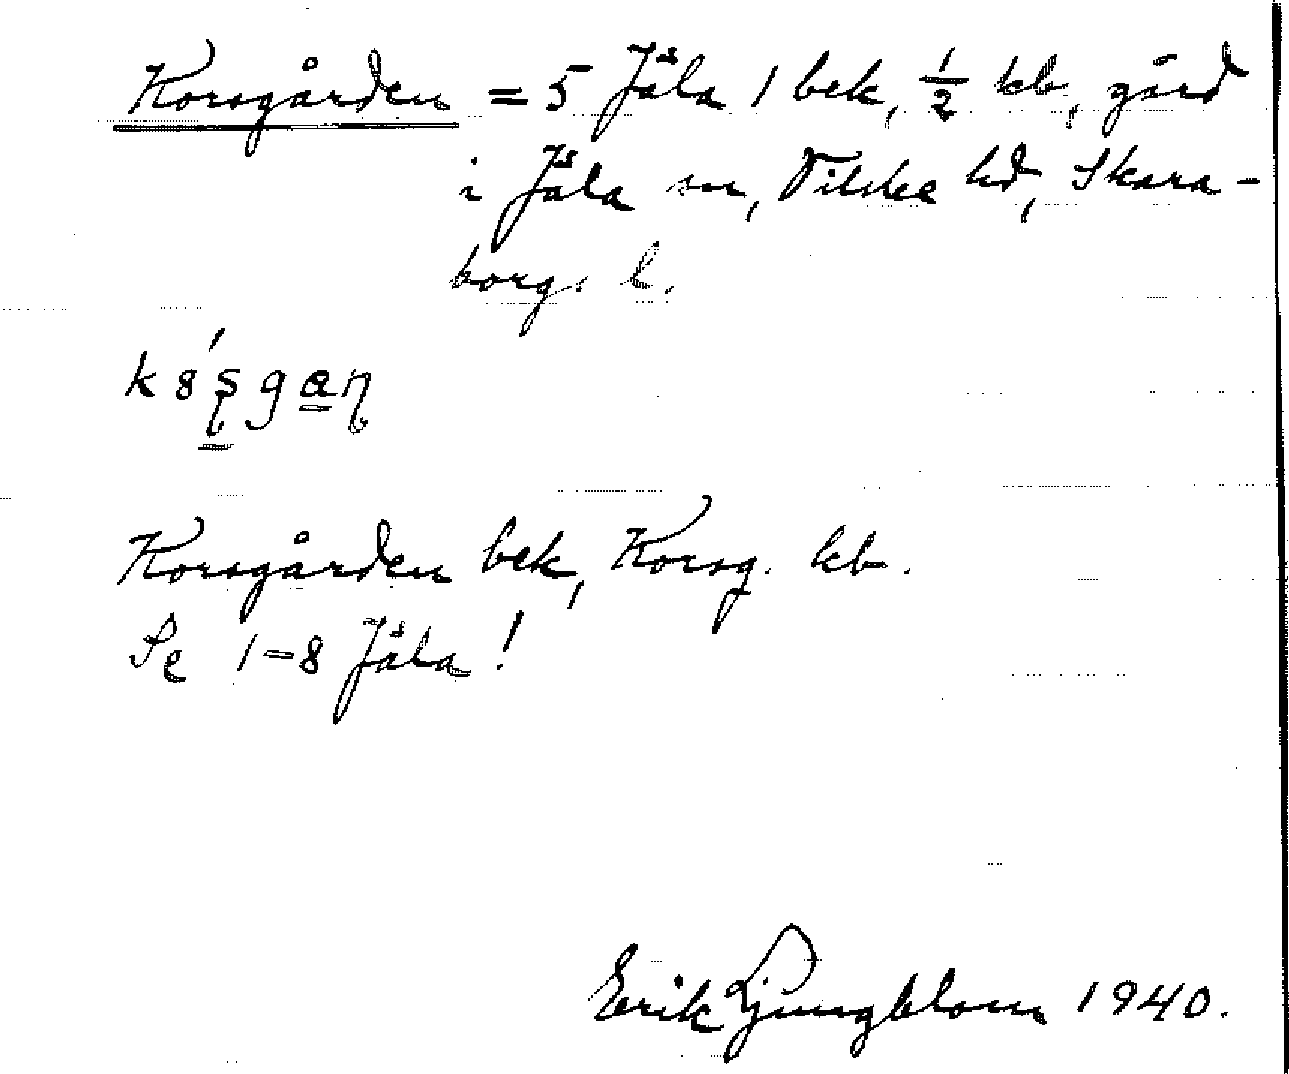 Korsgården = 5 Jäla 1 bek, 1/2 kb, gård
i Jäla sn, Vilske hd, Skara-
borgs l.
Korsgården bek, Korsg. kb.
Se 1-8 Jäla!
Erik Ljungblom 1940.